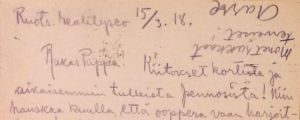 Ruots. realilyseo 15/3. 18.
Rakas Pappa. Kiitokset kortista ja
aikaisemmin tulleista pennosista! Niin
hauskaa kuulla, että ooppera vaan harjoit-
Monet rakkaat
terveiset!